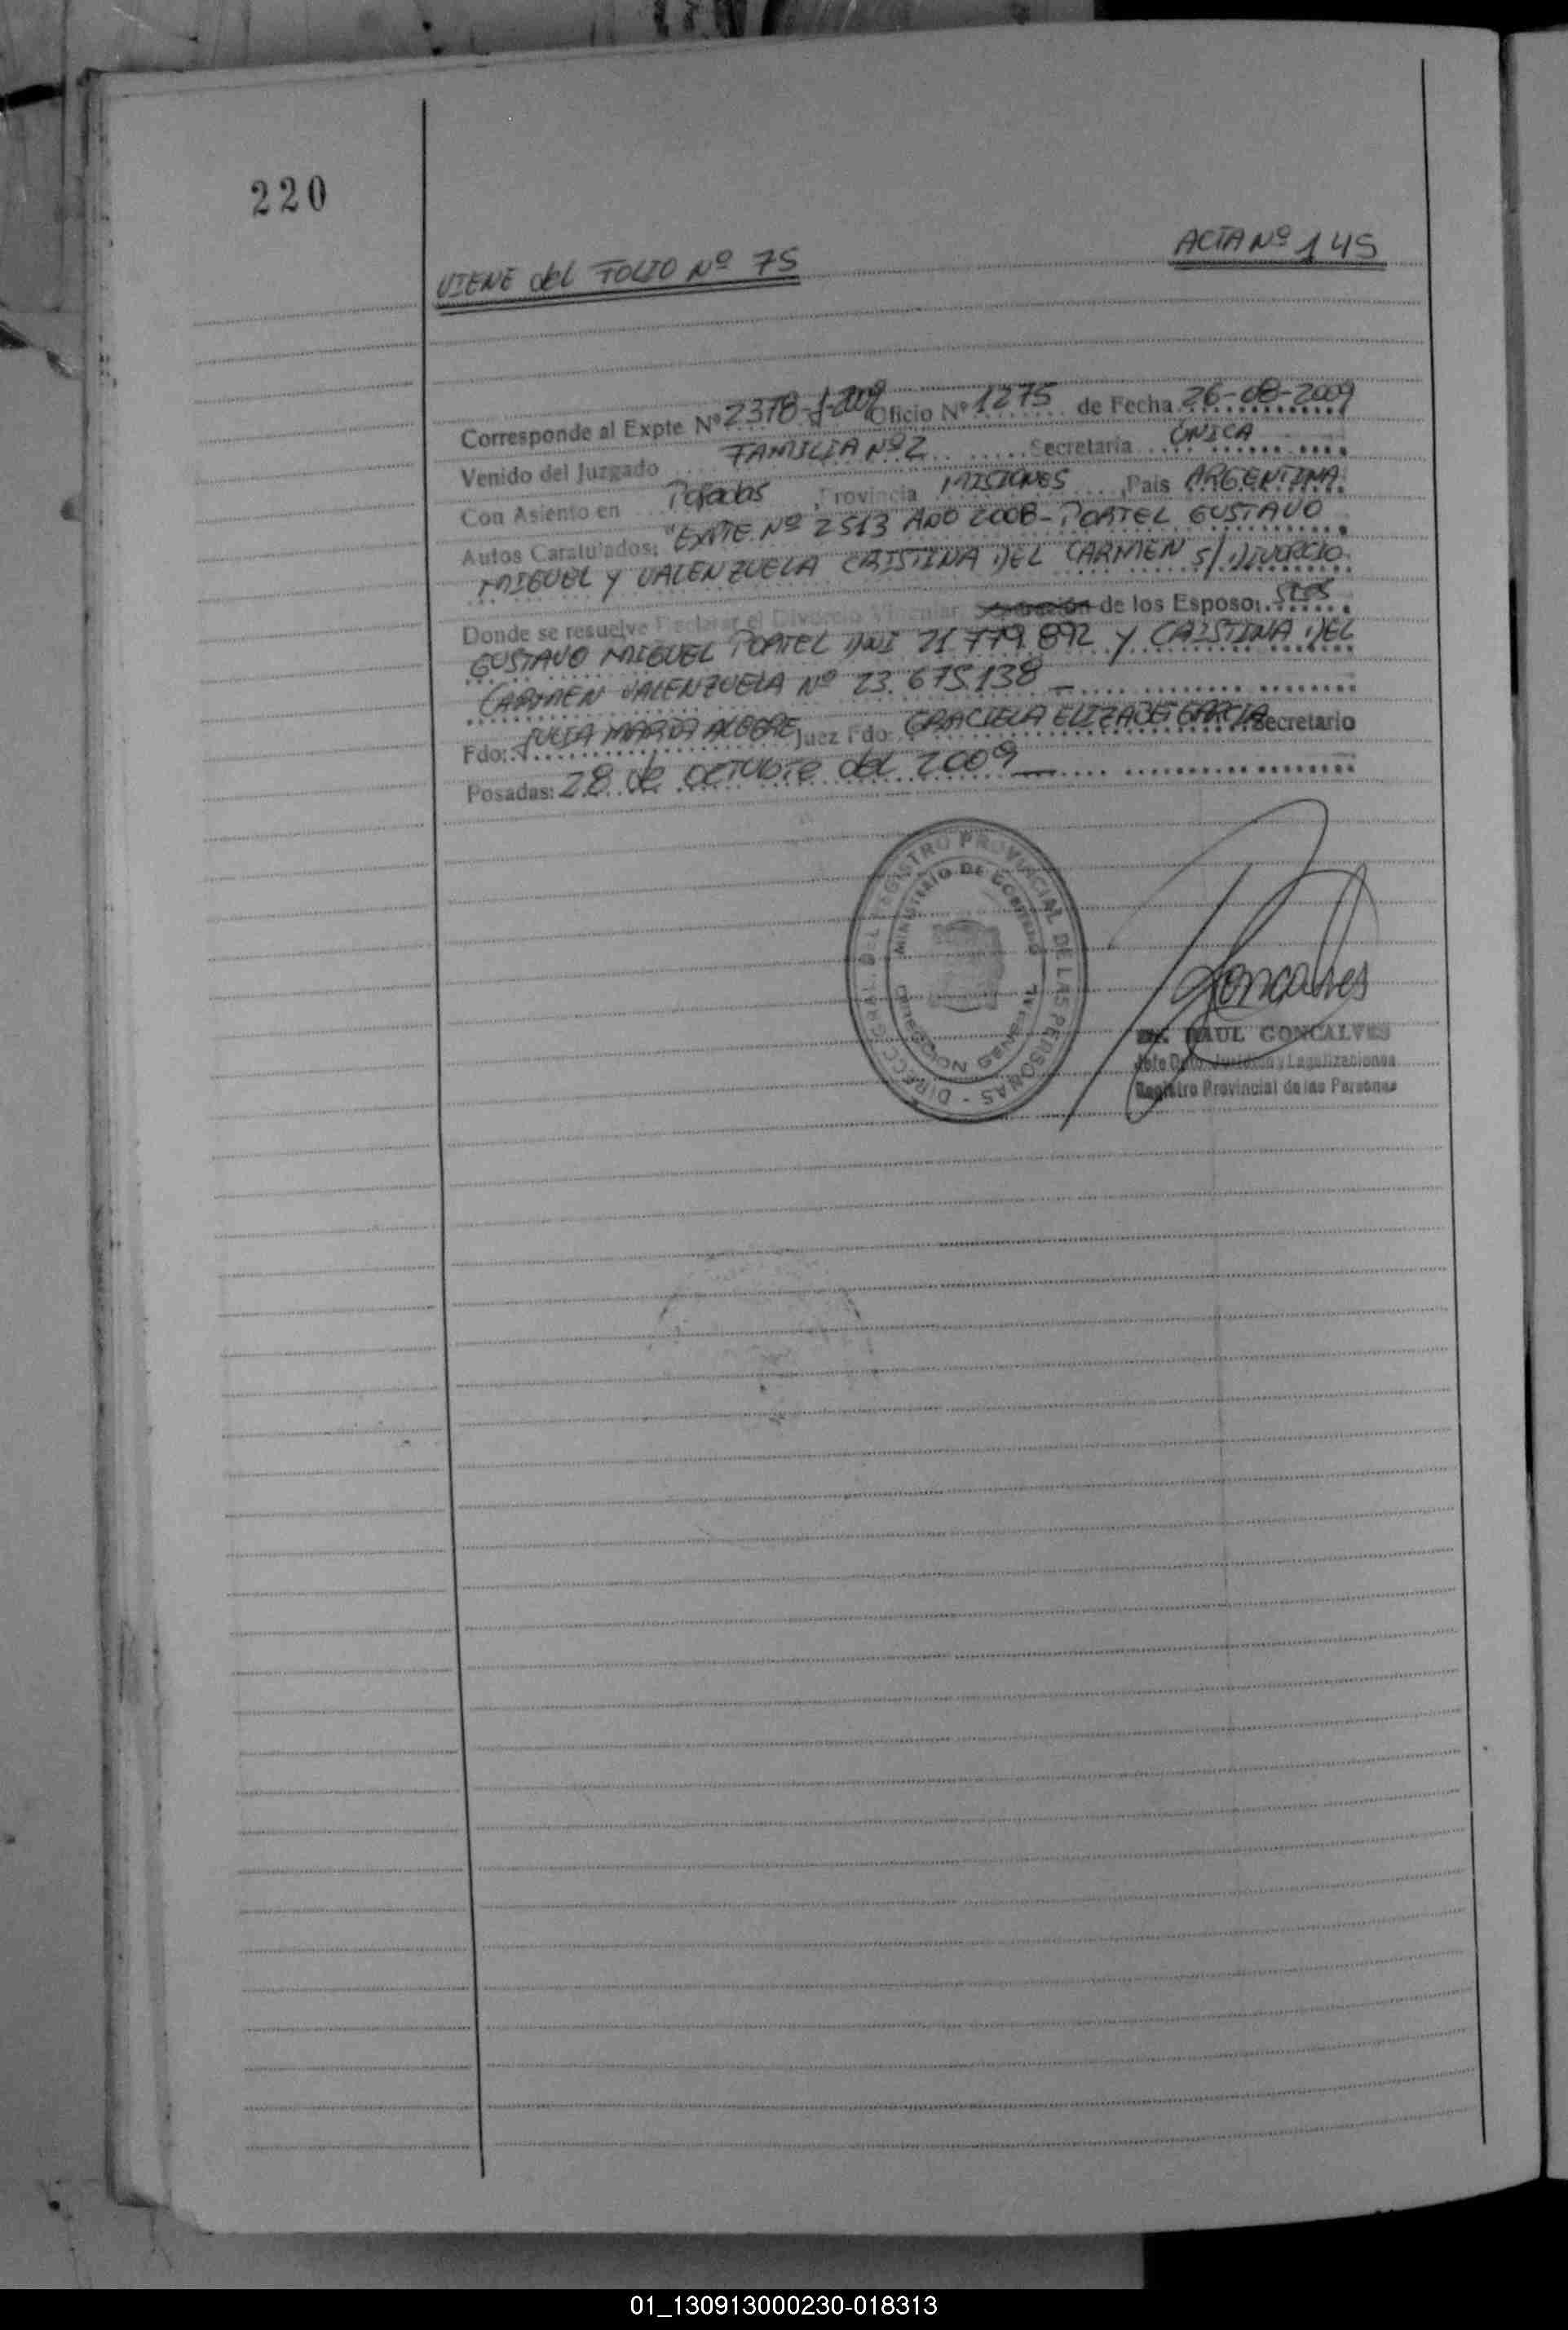 220
ACTA Nº 145
VIENE del FOLIO Nº 75
Corresponde al Expte Nº 2378-J-2009 Oficio Nº 1275 de Fecha 26-08-2009
Venido del Juzgado FAMILIA Nº 2 Secretaria UNICA
Con Asiento en Posadas Provincia MISIONES Pais ARGENTINA
Autos Caratulados: "EXPTE. Nº 2513 AÑO 2008 - PORTEL GUSTAVO
MIGUEL Y VALENZUELA CRISTINA DEL CARMEN S/ DIVORCIO
Donde se resuelve Declarar el Divorcio Vincular de los Esposos: SRES
GUSTAVO MIGUEL PORTEL DNI 21.779.892 Y CRISTINA DEL
CARMEN VALENZUELA Nº 23.675.138 —
Fdo: JULIA MARIA ALEGRE Juez Fdo: GRACIELA ELIZABET GARCIA Secretario
Posadas: 28 de OCTUBRE del 2009 —
DIRECC. GRAL. DEL REGISTRO PROVINCIAL DE LAS PERSONAS
MINISTERIO DE GOBIERNO
Goncalves
RAUL GONCALVES
Jefe Dpto. Jurídico y Legalizaciones
Registro Provincial de las Personas
01_130913000230-018313